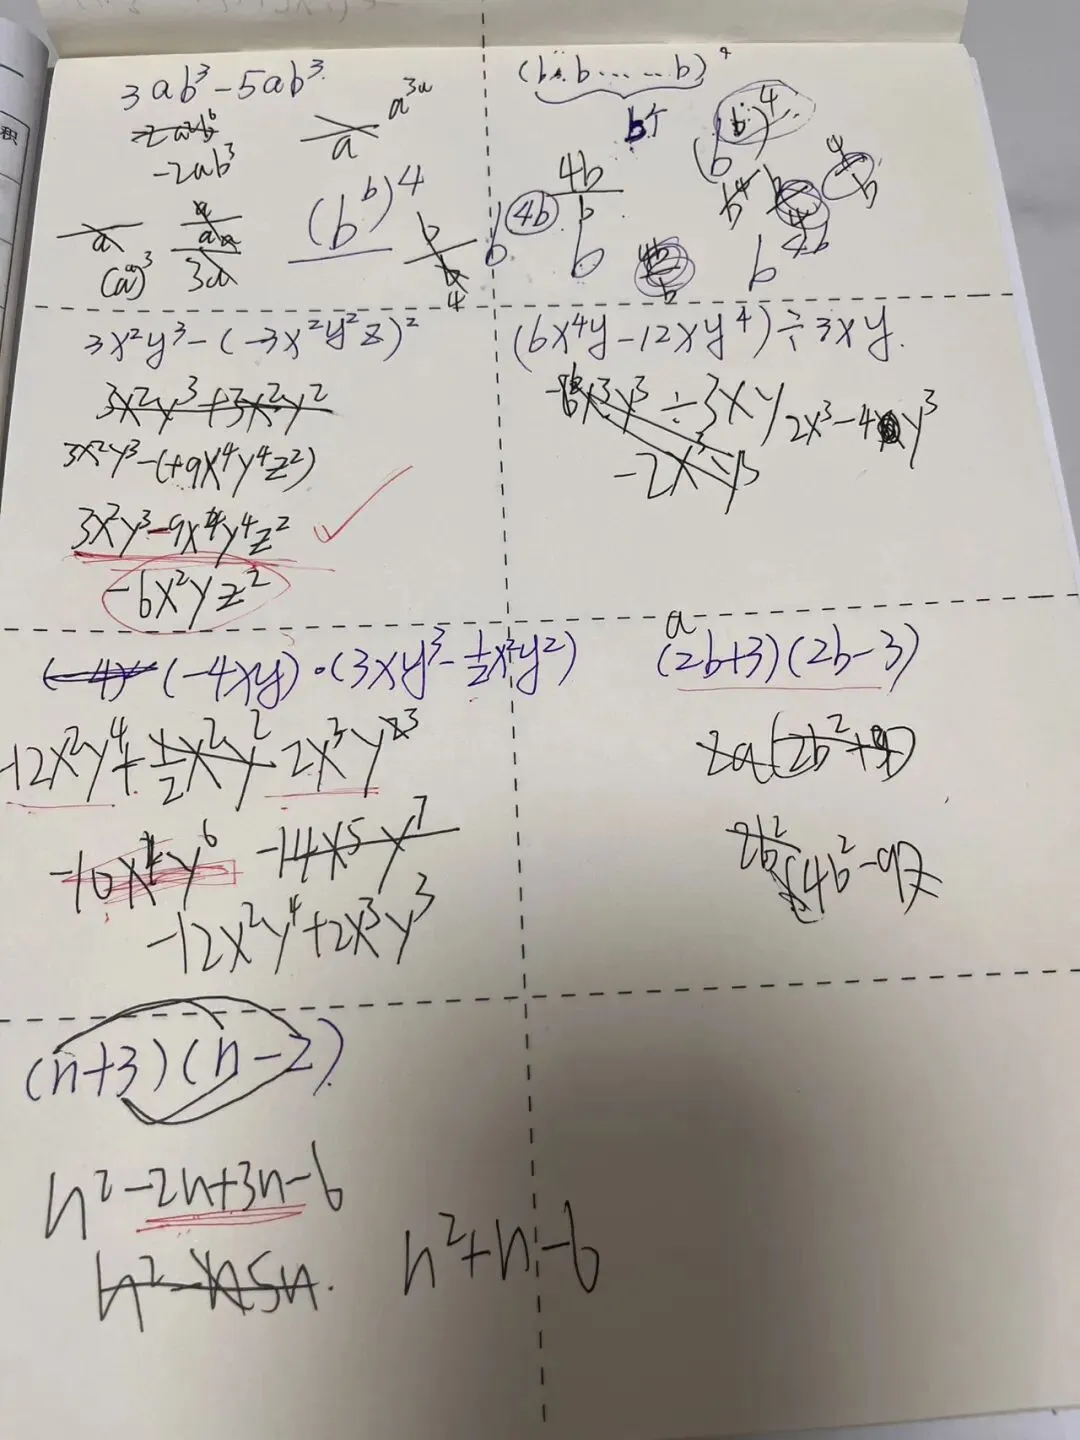 3ab³-5ab³
2a²b⁶
-2ab³
a
a³ᵃ
a
(aᵃ)³
3a
(bᵇ)⁴
b
4
(b·b······b)⁴
b个
(b)⁴
b
4b
b
b
b 4b
b⁴
b
b 4b
3x²y³-(-3x²y²z)²
3x²y³+3x²y²
3x²y³-(+9x⁴y⁴z²)
3x²y³-9x⁴y⁴z²
-6x²yz²
(6x⁴y-12xy⁴)÷3xy.
x³y³÷3xy
2x³-4y³
-2x³y³
(-4x (-4xy)·(3xy³-½x²y²)
-12x²y⁴+½x²y² 2x³y³
-10x⁴y⁶ -14x⁵y⁷
-12x²y⁴+2x³y³
a
(2b+3)(2b-3)
2a(2b²+9)
2b²
(4b²-9)
(n+3)(n-2)
n²-2n+3n-6
n²-5n.
n²+n-6